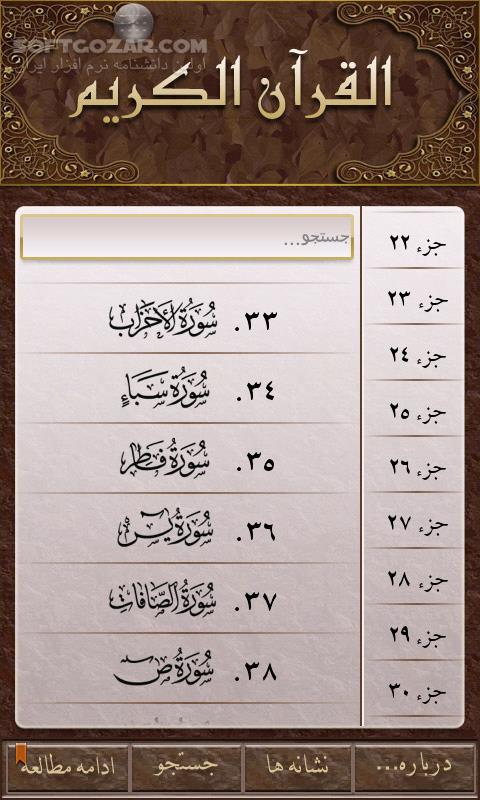 SOFTGOZAR.COM
اولین دانشنامه نرم افزار ایران
القرآن الكريم
جستجو...
٣٣. سُورَةُ الأَحزَاب
٣٤. سُورَةُ سَبَاءٍ
٣٥. سُورَةُ فَاطِر
٣٦. سُورَةُ يسٓ
٣٧. سُورَةُ الصَّافَّاتِ
٣٨. سُورَةُ صٓ
جزء ٢٢
جزء ٢٣
جزء ٢٤
جزء ٢٥
جزء ٢٦
جزء ٢٧
جزء ٢٨
جزء ٢٩
جزء ٣٠
درباره...
نشانه ها
جستجو
ادامه مطالعه